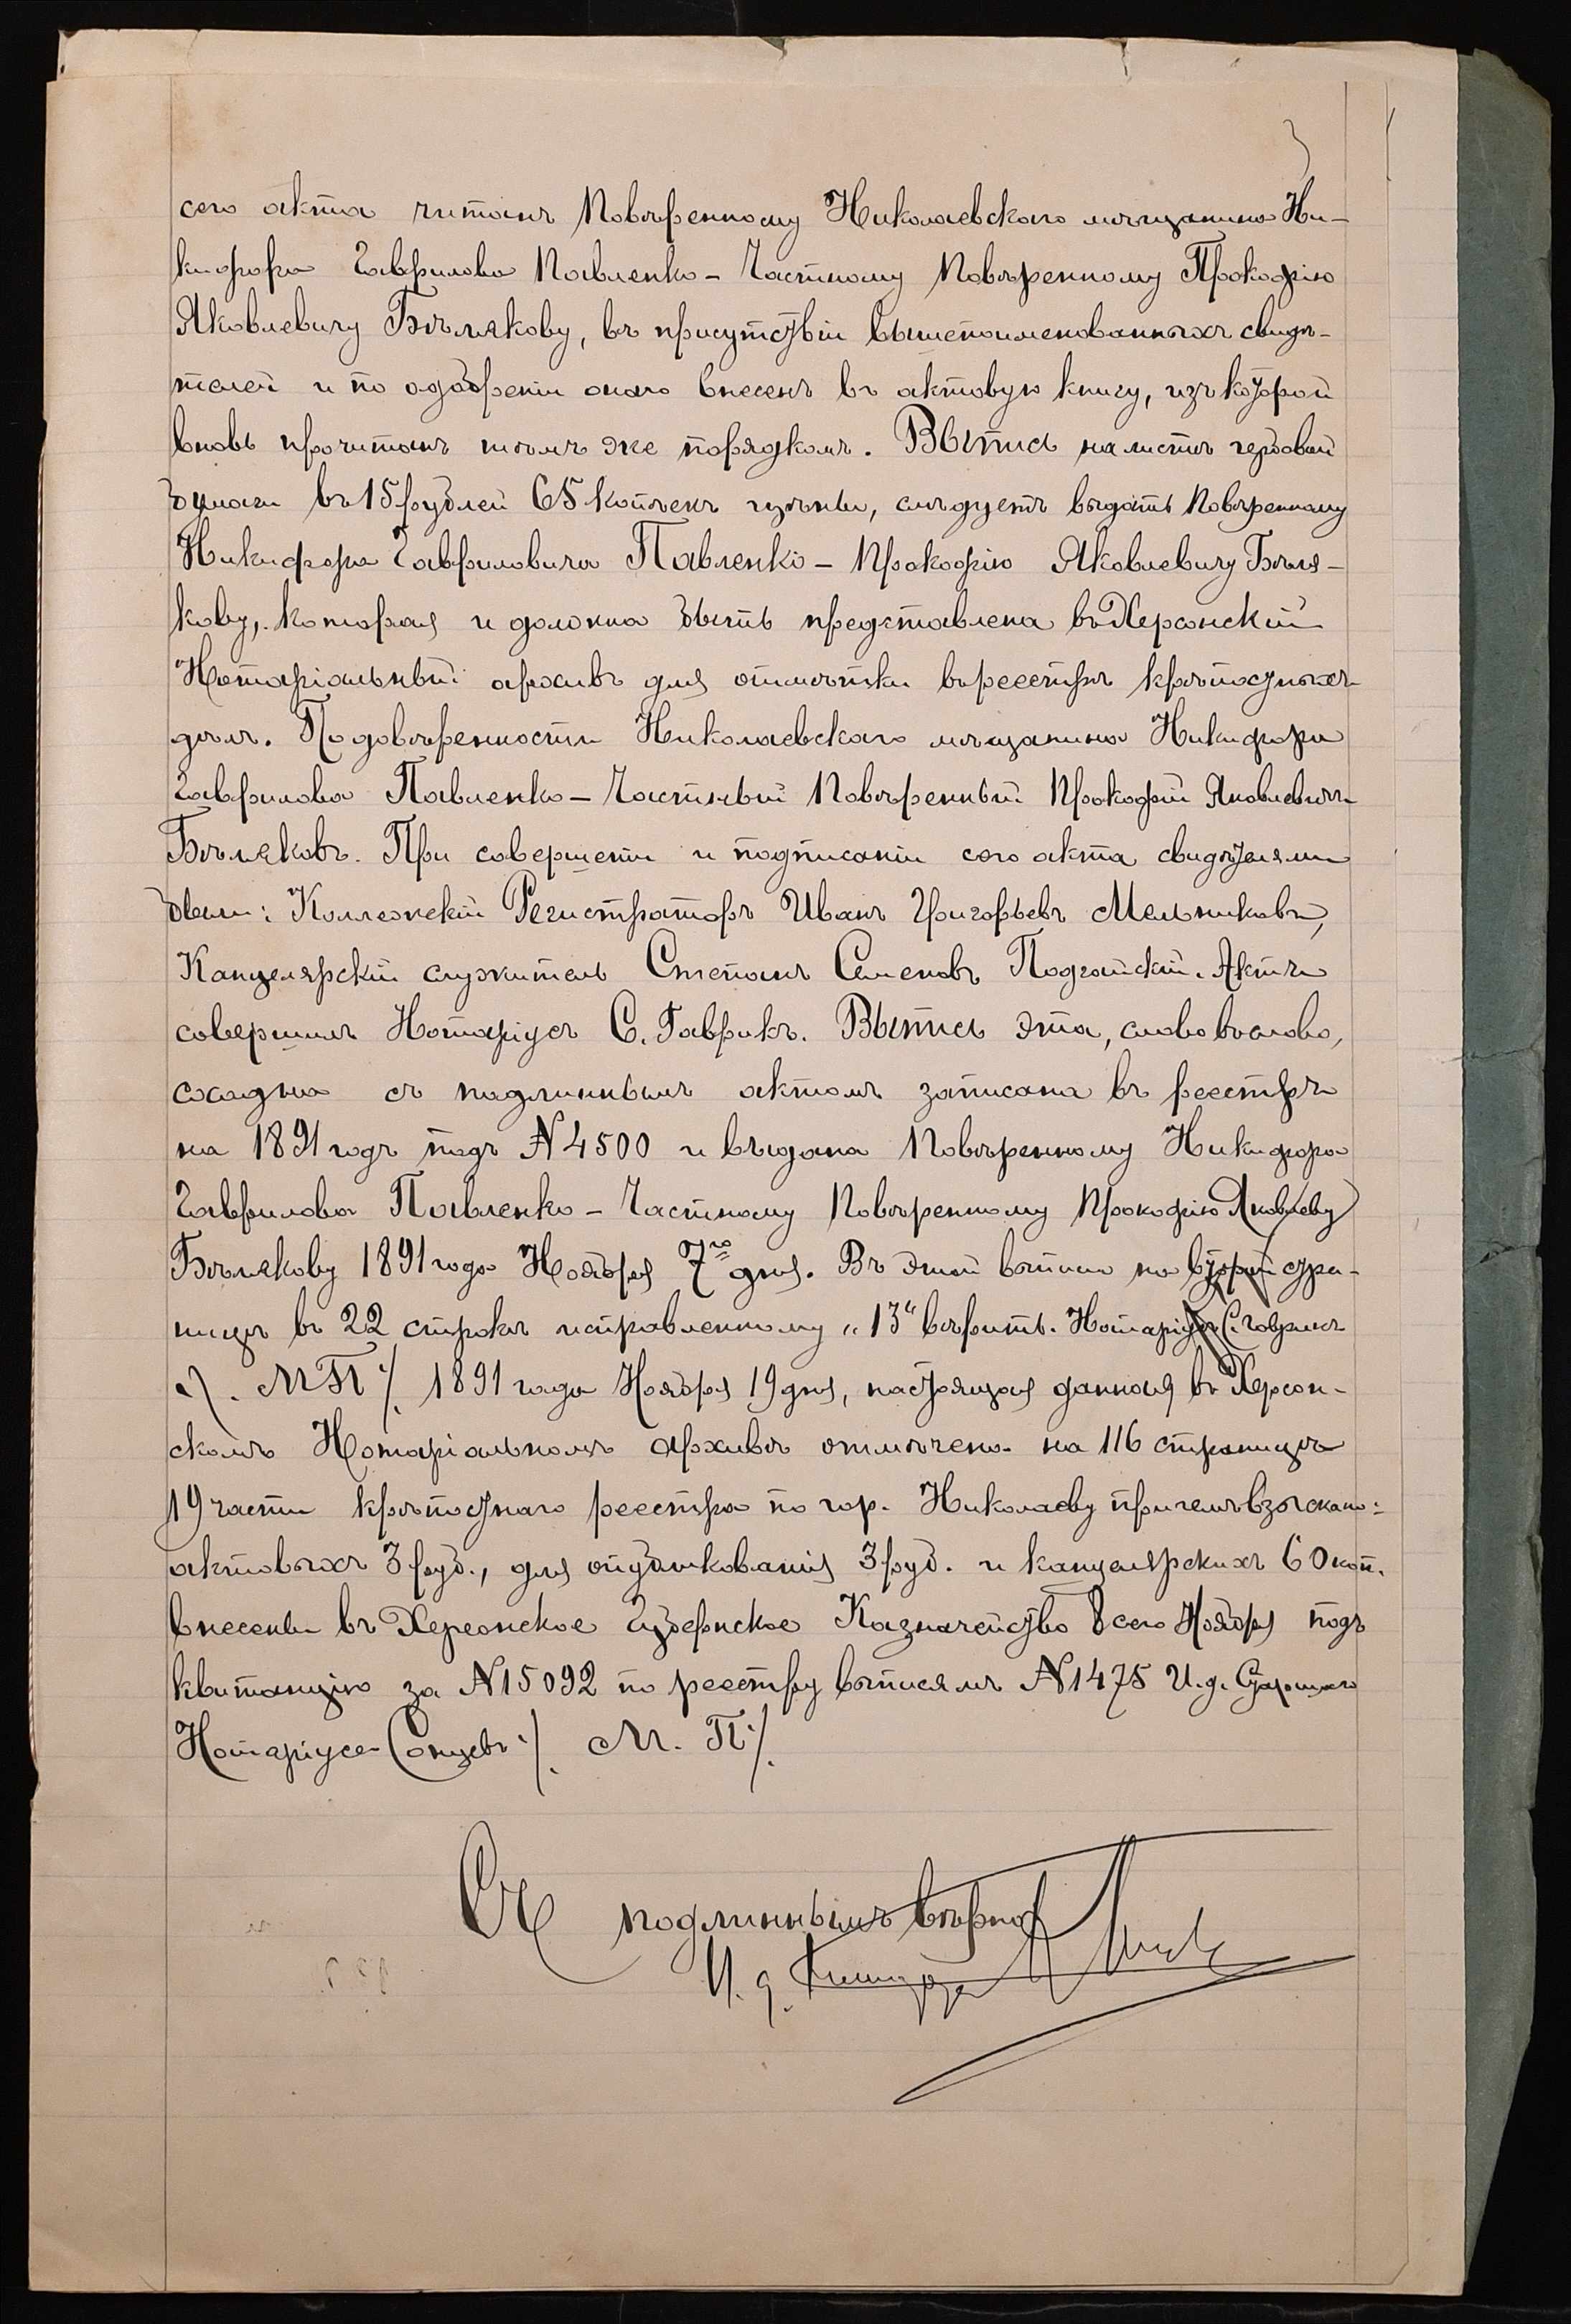 сего акта читанъ Повѣренному Николаевскаго мѣщанина Ни-
кифора Гаврилова Павленко – Частному Повѣренному Прокофію
Яковлевичу Бѣлякову, въ присутствіи вышепоименованныхъ свидѣ-
телей и по одобреніи онаго внесенъ въ актовую книгу, изъ которой
вновь прочитанъ тѣмъ же порядкомъ. Выпись на листѣ гербовой
бумаги въ 15 рублей 65 копѣекъ цѣны, слѣдуетъ выдать Повѣренному
Никифора Гавриловича Павленко – Прокофію Яковлевичу Бѣля-
кову, которая и должна быть представлена въ Херсонскій
Нотаріальный архивъ для отмѣтки въ реестрѣ крѣпостныхъ
дѣлъ. По довѣренности Николаевскаго мѣщанина Никифора
Гаврилова Павленко – Частный Повѣренный Прокофій Яковлевичъ
Бѣляковъ. При совершеніи и подписаніи сего акта свидѣтелями
были: Коллежскій Регистраторъ Иванъ Григорьевъ Мельниковъ,
Канцелярскій служитель Степанъ Семеновъ Подгайскій. Актъ
совершилъ Нотаріусъ С. Гаврикъ. Выпись эта, слово въ слово,
сходна съ подлиннымъ актомъ записана въ реестръ
на 1891 годъ подъ № 4500 и выдана Повѣренному Никифора
Гаврилова Павленко – Частному Повѣренному Прокофію Яковлеву
Бѣлякову 1891 года Ноября 7го дня. Въ этой выписи на второй стра-
ницѣ въ 22 строкѣ исправленному „13“ вѣрить. Нотаріусъ С. Гаврикъ
М П / 1891 года Ноября 19 дня, настоящая данная въ Херсон-
скомъ Нотаріальномъ Архивѣ отмѣчена на 116 страницѣ
19 части крѣпостнаго реестра по гор. Николаеву причемъ взыскано:
актовыхъ 3 руб., для опубликованія 3 руб. и канцелярскихъ 60 коп.
внесены въ Херсонское Губернское Казначейство 8 сего Ноября подъ
квитанцію за № 15092 по реестру выписямъ № 1475 И.д. Старшаго
Нотаріуса Сонцевъ / М. П /.
Съ подлиннымъ вѣрно
И. д.